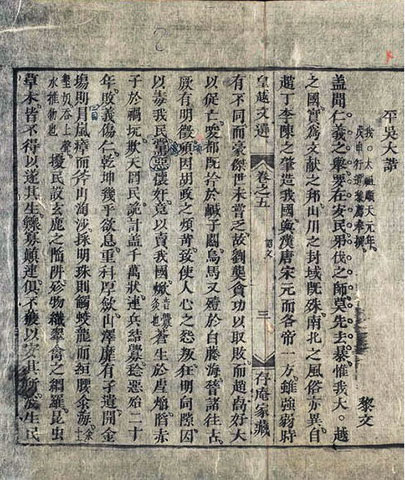 平吳大誥
我太祖順天元年
戊申行遣黎廌奉撰
黎文
蓋聞仁義之舉要在安民弔伐之師莫先去暴惟我大越
之國實爲文献之邦山川之封域既殊南北之風俗亦異自
趙丁李陳之肇造我國與漢唐宋元而各帝一方雖強弱時
皇越文選 卷之五 誥文 三 存庵家藏
有不同而豪傑世未嘗乏故劉龑貪功以取敗而趙卨好大
以促亡唆都既拾於鹹子關烏馬又殪於白藤海嵇諸往古
厥有明徵頃因胡政之煩苛致使人心之怨叛狂明伺隙因
以毒我民惡黨懷奸竟以賣我國焮蒼生於虐焰陷赤
子於禍坑欺天罔民詭計蓋千萬狀連兵結釁稔惡殆二十
年敗義傷仁乾坤幾乎欲息重科厚歛山澤靡有孑遺開金
場則冐嵐瘴而斧山淘沙採明珠則觸蛟龍而絙腰汆海
擾民設玄鹿之陷阱殄物織翠禽之網羅昆虫
草木皆不得以遂其生鰥寡顛連俱不獲以安其所浚生民